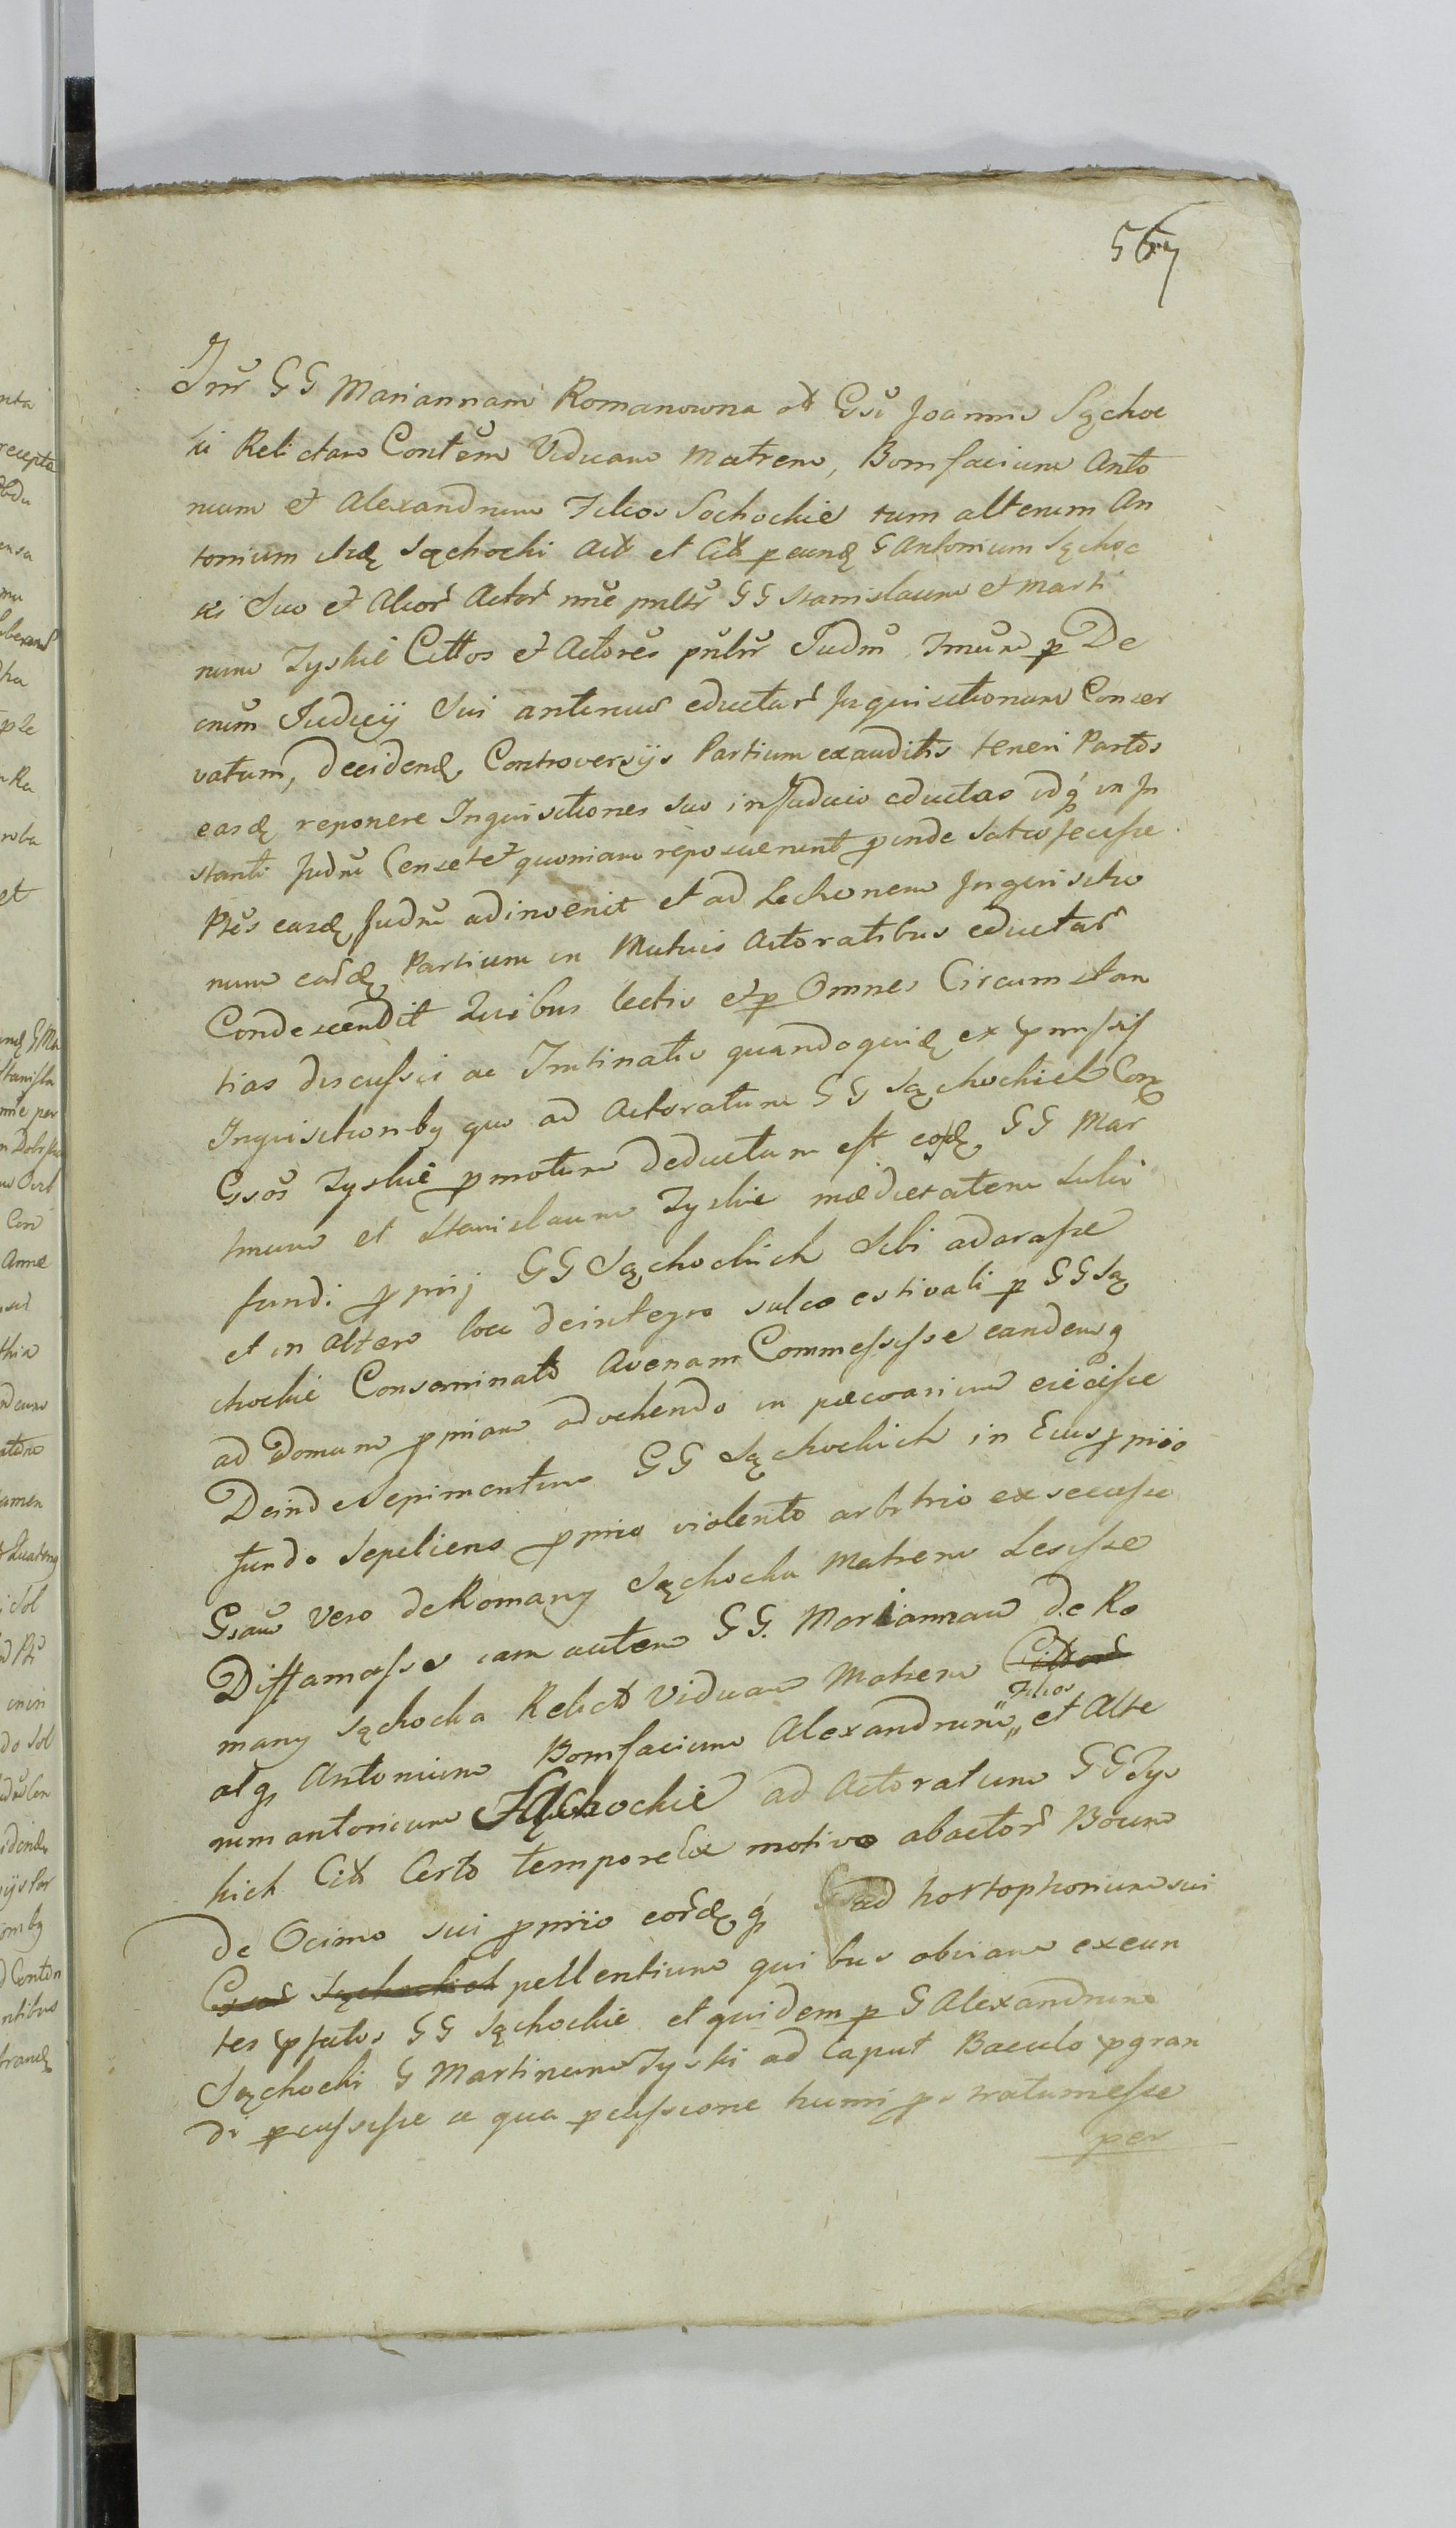 567
Inr GG Mariannam Romanowna olt Gsi Joannis Sąchoc
ki Relictam Contem Viduam Matrem, Bonifacium Anto
nium et Alexandrum Filios Sochockie tum alterum An
tonium itidę Sąchocki Act et Citt p eundę G Antonium Sąchoc
ki Suo et Alior Actor nne pnltr GG Stanislaum et Marti
num Zyskie Cittos et Actores pnltr Judm Imum p De
crum Judicij Sui anterius eductar Inquisitionum Conser
vatum, decidendę Controversijs Partium exauditis teneri Partes
easdę reponere Inquisitiones suo in Judicio eductas idq in In
stanti Judm Censet et quoniam reposuerunt proinde satisfecisse
Ptes easdę Judm adinvenit et ad Lectionem Inquisitio
num eardę Partium in Mutuis Actoratibus eductar
Condescendit Quibus lectis et p Omnes Circumstan
tias discussis ac Trutinatis quandoquidę ex pmissis
Inquisitionbq quo ad Actoratum GG Sąchockich Con
Gsos Zyskie pmotum deductum est eosdę GG Mar
tinum et Stanislaum Zyskie medietatem sulci
fundi pprij GG Sąchockich sibi adarasse
et in altero loco deintegro sulco estivali p GG Są
chockie Conseminato Avenam Commessisse eandemq
ad Domum ppriam advehendo in pecoarium eiecisse
Deinde Sepimentum GG Sąchockich in Eius pprio
fundo Sepeliens pprio violento arbitrio exsecasse
Gsam Vero de Romany Sąchocka Matrem Lesisse
Diffamasse iam autem GG. Mariannam de Ro
many Sąchocka Relict Viduam Matrem Cittos
atq Antonium Bonifacium Alexandrum Filios et Alte
rum antonium Sąchockie ad Actoratum GG Zys
kich Citt Certo tempore Ex motivo abactor Boum
de Ocimo sui pprio eordę q ad hortophorium sui
Gsos Sąchockich pellentium quibus obviam exeun
tes pfatos GG Sąchockie et quidem p G Alexandrum
Sąchocki G Martinum Zyski ad Caput Baculo pgran
di pcussisse a qua pcussione humi pstratum esse
per